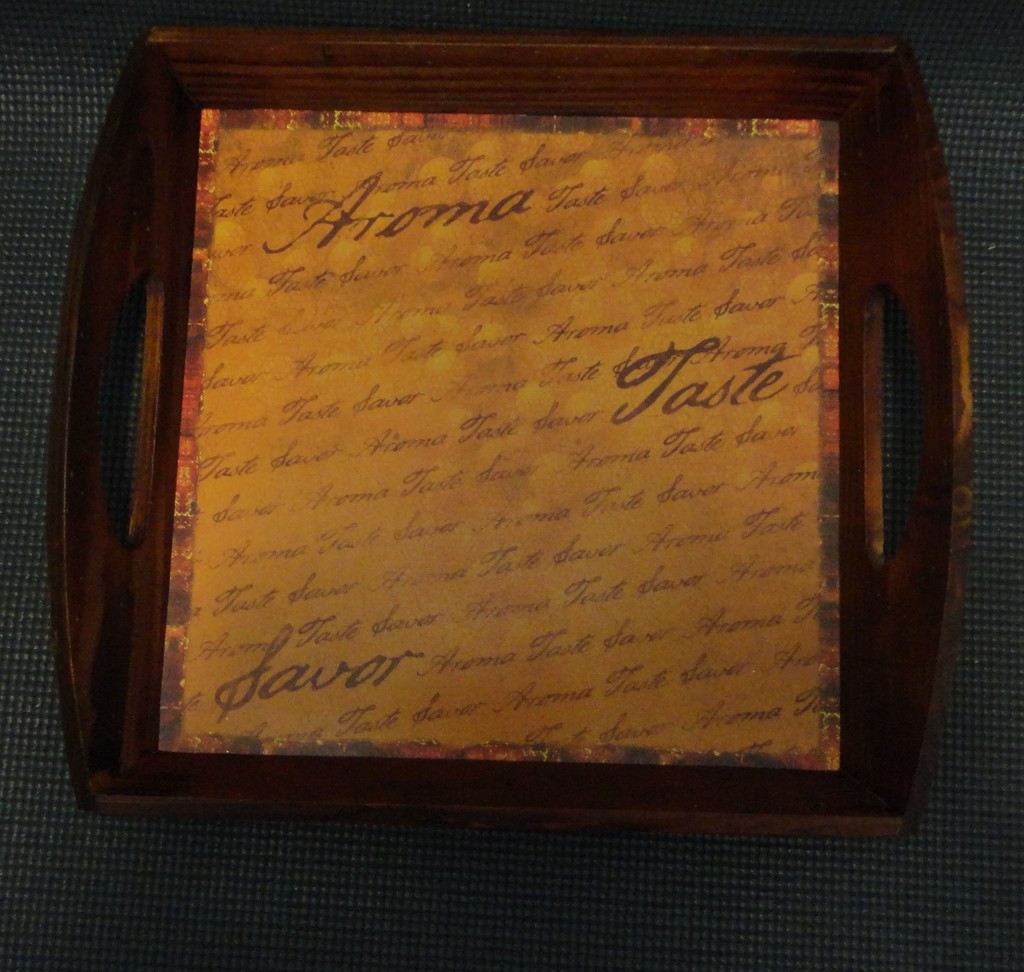 Aroma Taste Savor Aroma
Taste Savor Aroma Taste Savor Aroma
Aroma
Taste Savor Aroma
Taste Savor Aroma Taste Savor Aroma
Taste Savor Aroma Taste Savor Aroma Taste
Savor Aroma Taste Savor Aroma Taste Savor
Taste
Aroma Taste Savor Aroma Taste Aroma
Taste Savor Aroma Taste Savor
Savor Aroma Taste Savor Aroma Taste Savor
Aroma Taste Savor Aroma Taste Savor
Taste Savor Aroma Taste Savor Aroma Taste
Aroma Taste Savor Aroma Taste Savor Aroma
Savor
Aroma Taste Savor Aroma
Taste Savor Aroma Taste Savor
Savor Aroma